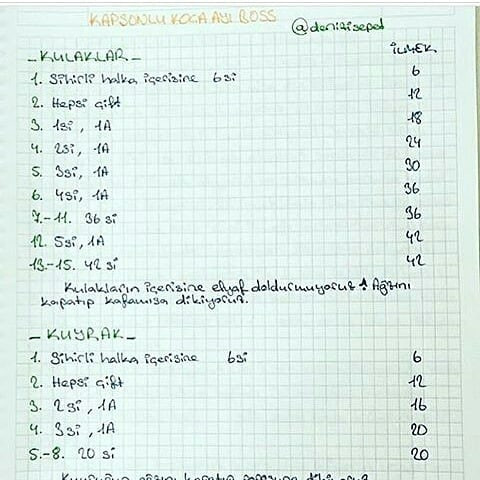 KAPSONLU KOCA AYI BOSS
@denizisepet
İLMEK
- KULAKLAR -
1. Sihirli halka içerisine 6si 6
2. Hepsi çift 12
3. 1si, 1A 18
4. 2si, 1A 24
5. 3si, 1A 30
6. 4si, 1A 36
7.-11. 36 si 36
12. 5si, 1A 42
13.-15. 42 si 42
Kulakların içerisine elyaf doldurmuyoruz! Ağzını
kapatıp kafamıza dikiyoruz.
- KUYRAK -
1. Sihirli halka içerisine 6si 6
2. Hepsi çift 12
3. 2si, 1A 16
4. 3si, 1A 20
5.-8. 20 si 20